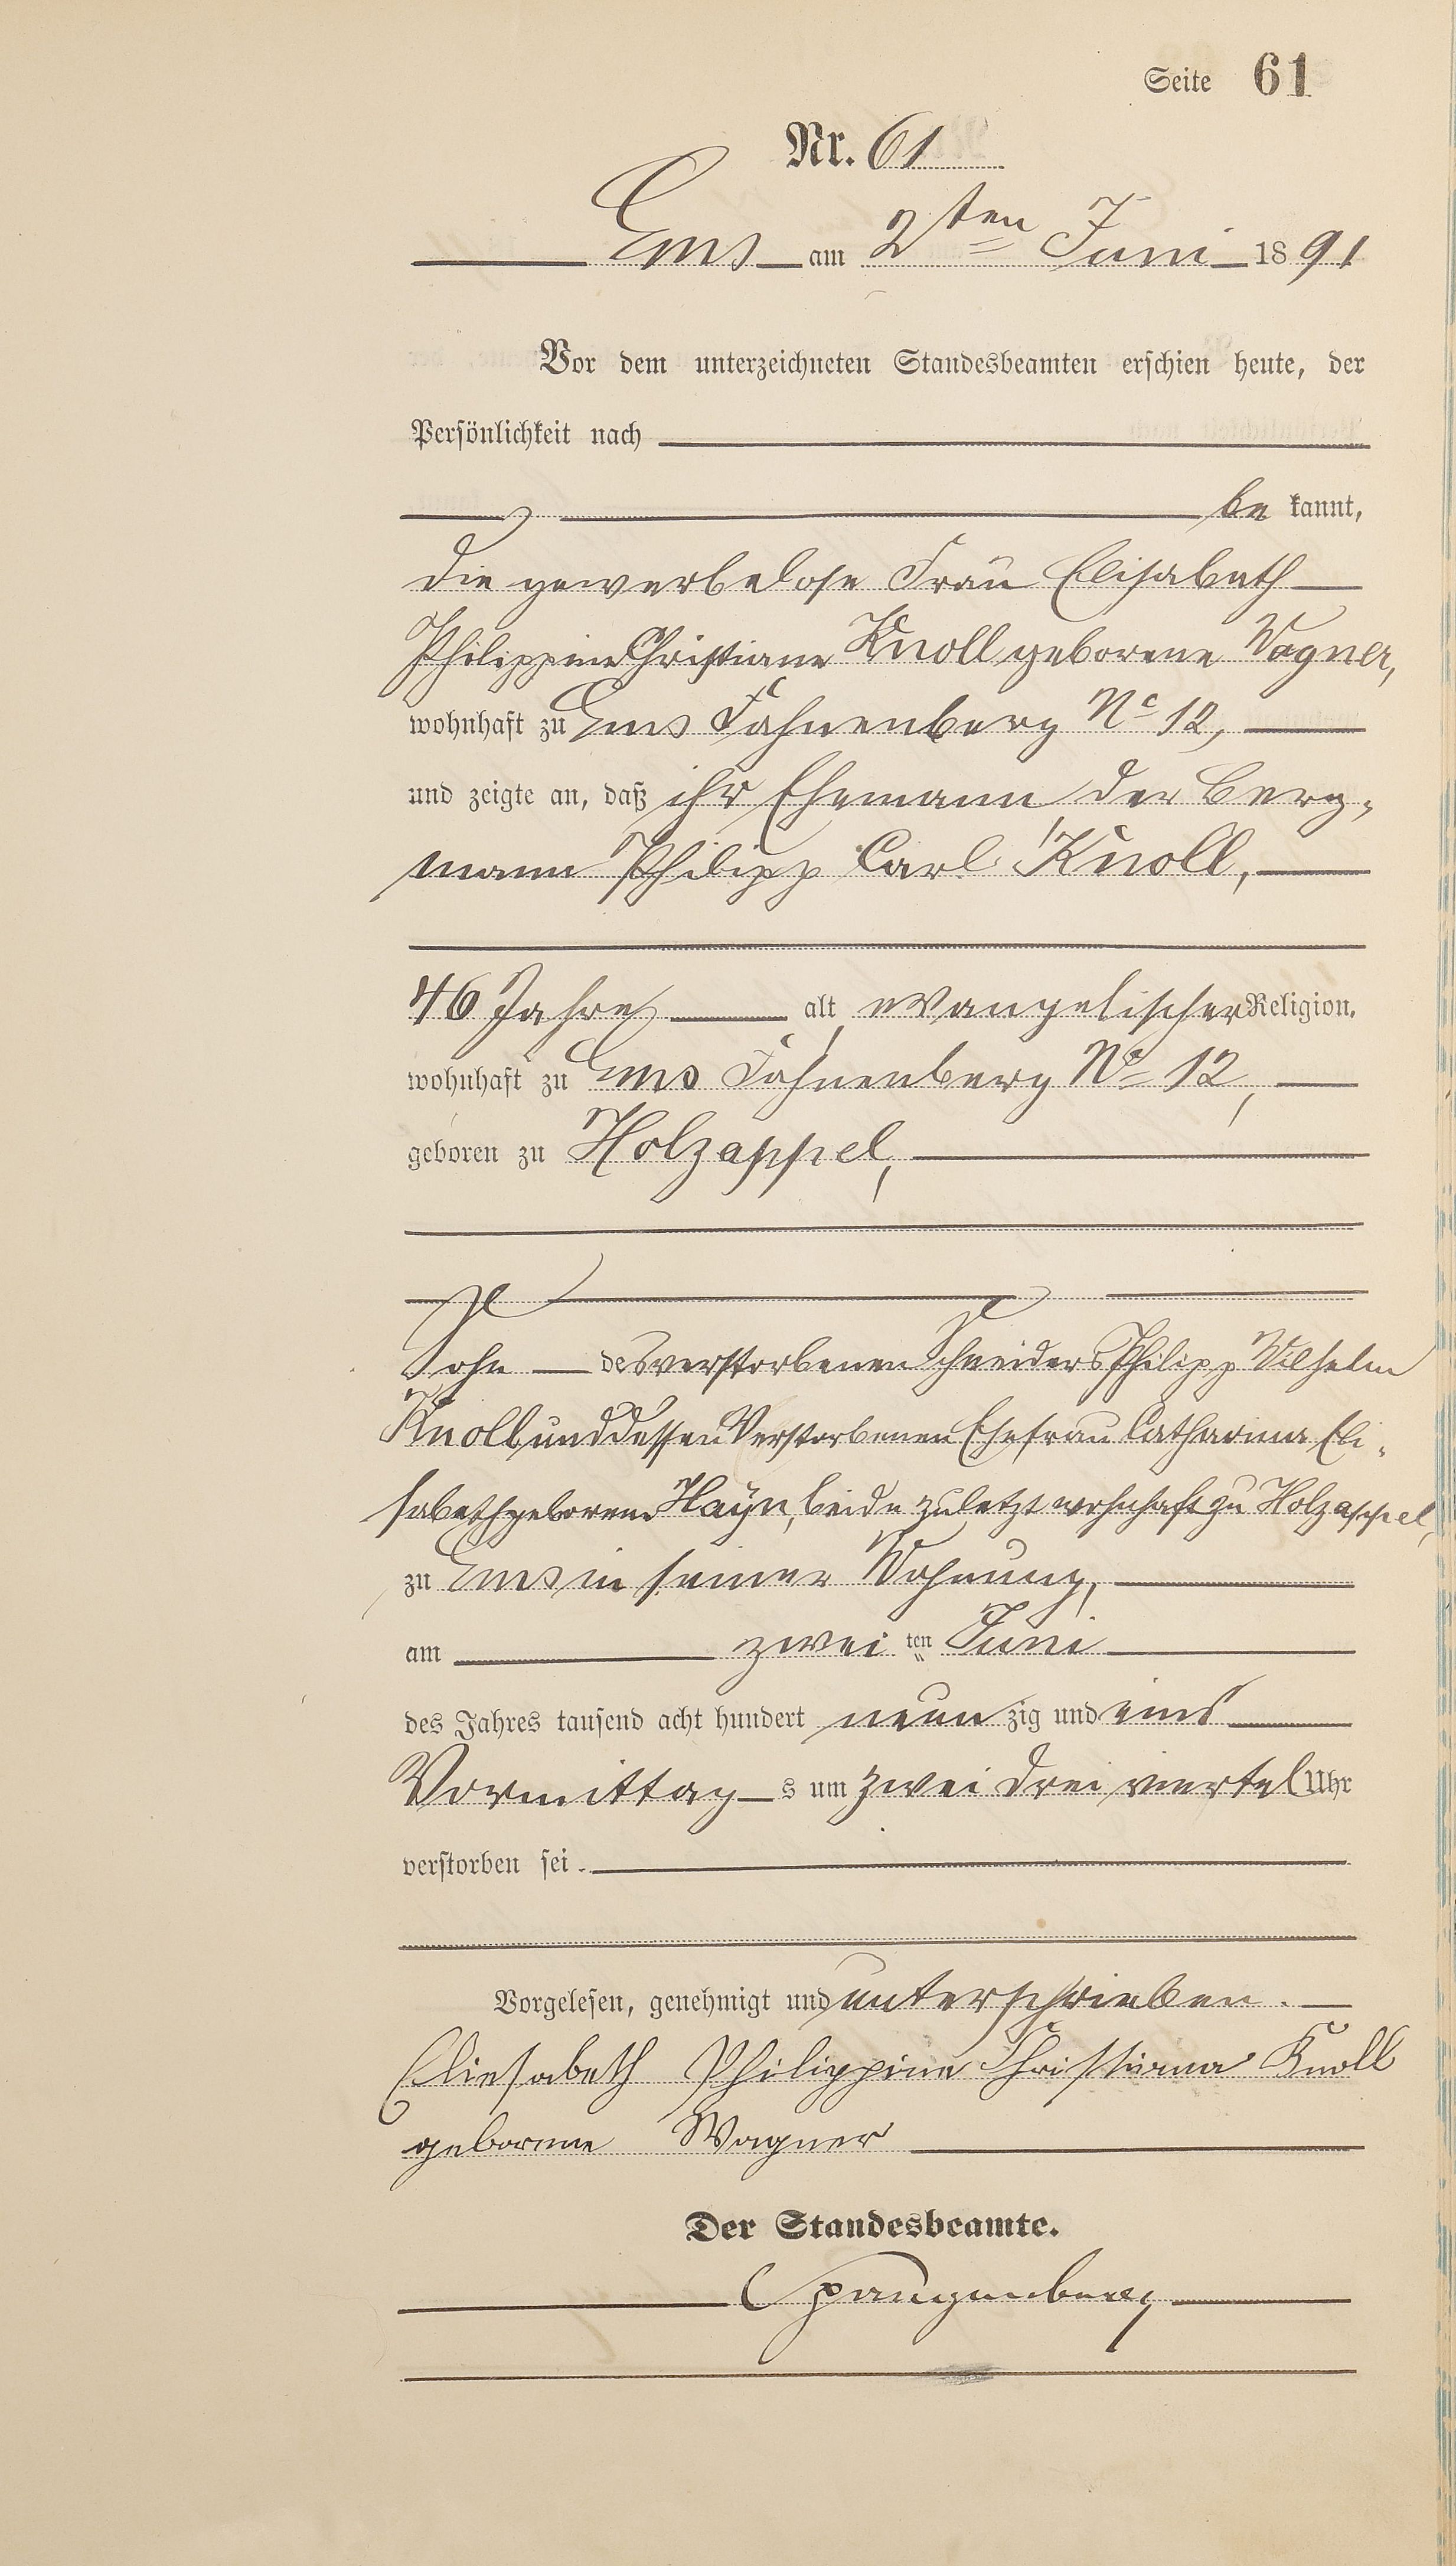 Seite 61
Nr. 61
Ems am 2ten Juni 1891
Vor dem unterzeichneten Standesbeamten erschien heute, der
Persönlichkeit nach
be kannt,
die gewerbelose Frau Elisabeth
Philippine Christiane Knoll geborene Wagner,
wohnhaft zu Ems Fahnenberg No 12,
und zeigte an, daß ihr Ehemann der Berg-
mann Philipp Carl Knoll,
46 Jahre alt, evangelischer Religion,
wohnhaft zu Ems Fahnenberg No 12,
geboren zu Holzappel,
Sohn des verstorbenen Schneiders Philipp Wilhelm
Knoll und dessen verstorbenen Ehefrau Catharina Eli-
sabeth geborene Hayn, beide zuletzt wohnhaft zu Holzappel,
zu Ems in seiner Wohnung,
am zwei ten Juni
des Jahres tausend acht hundert neun zig und eins
Vormittag s um zwei drei viertel Uhr
verstorben sei.
Vorgelesen, genehmigt und unterschrieben.
Eliesabeth Philippine Christiana Knoll
geborne Wagner
Der Standesbeamte.
Spangenberg